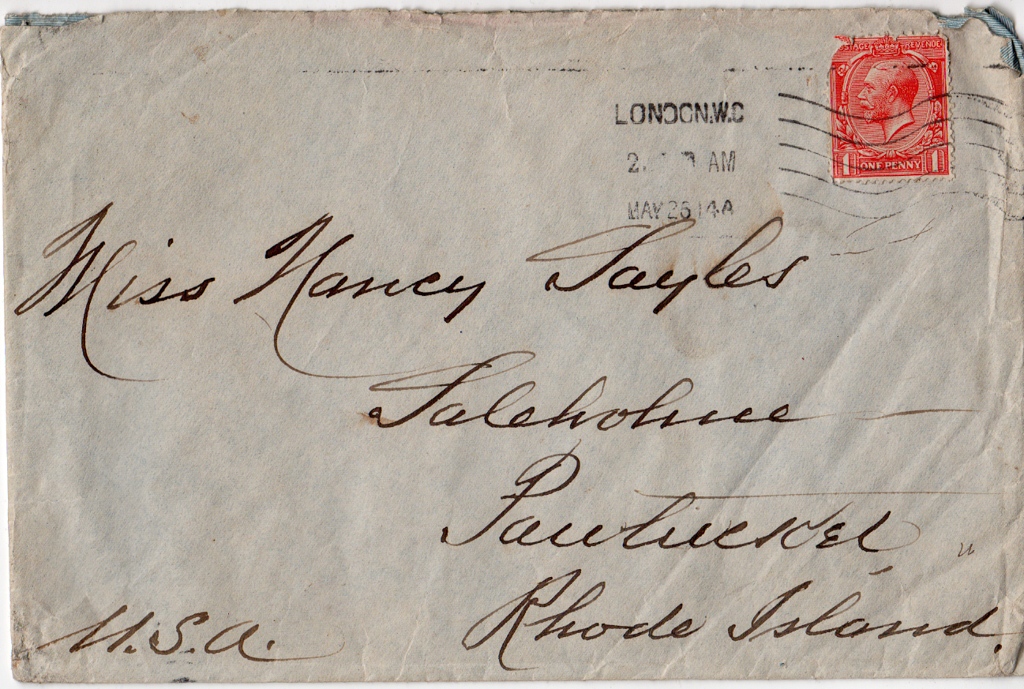 POSTAGE REVENUE
LONDON.W.C
AM
MAY 26 14
1 ONE PENNY 1
Miss Nancy Sayles
Saleholme
Pawtucket
Rhode Island.
U.S.A.